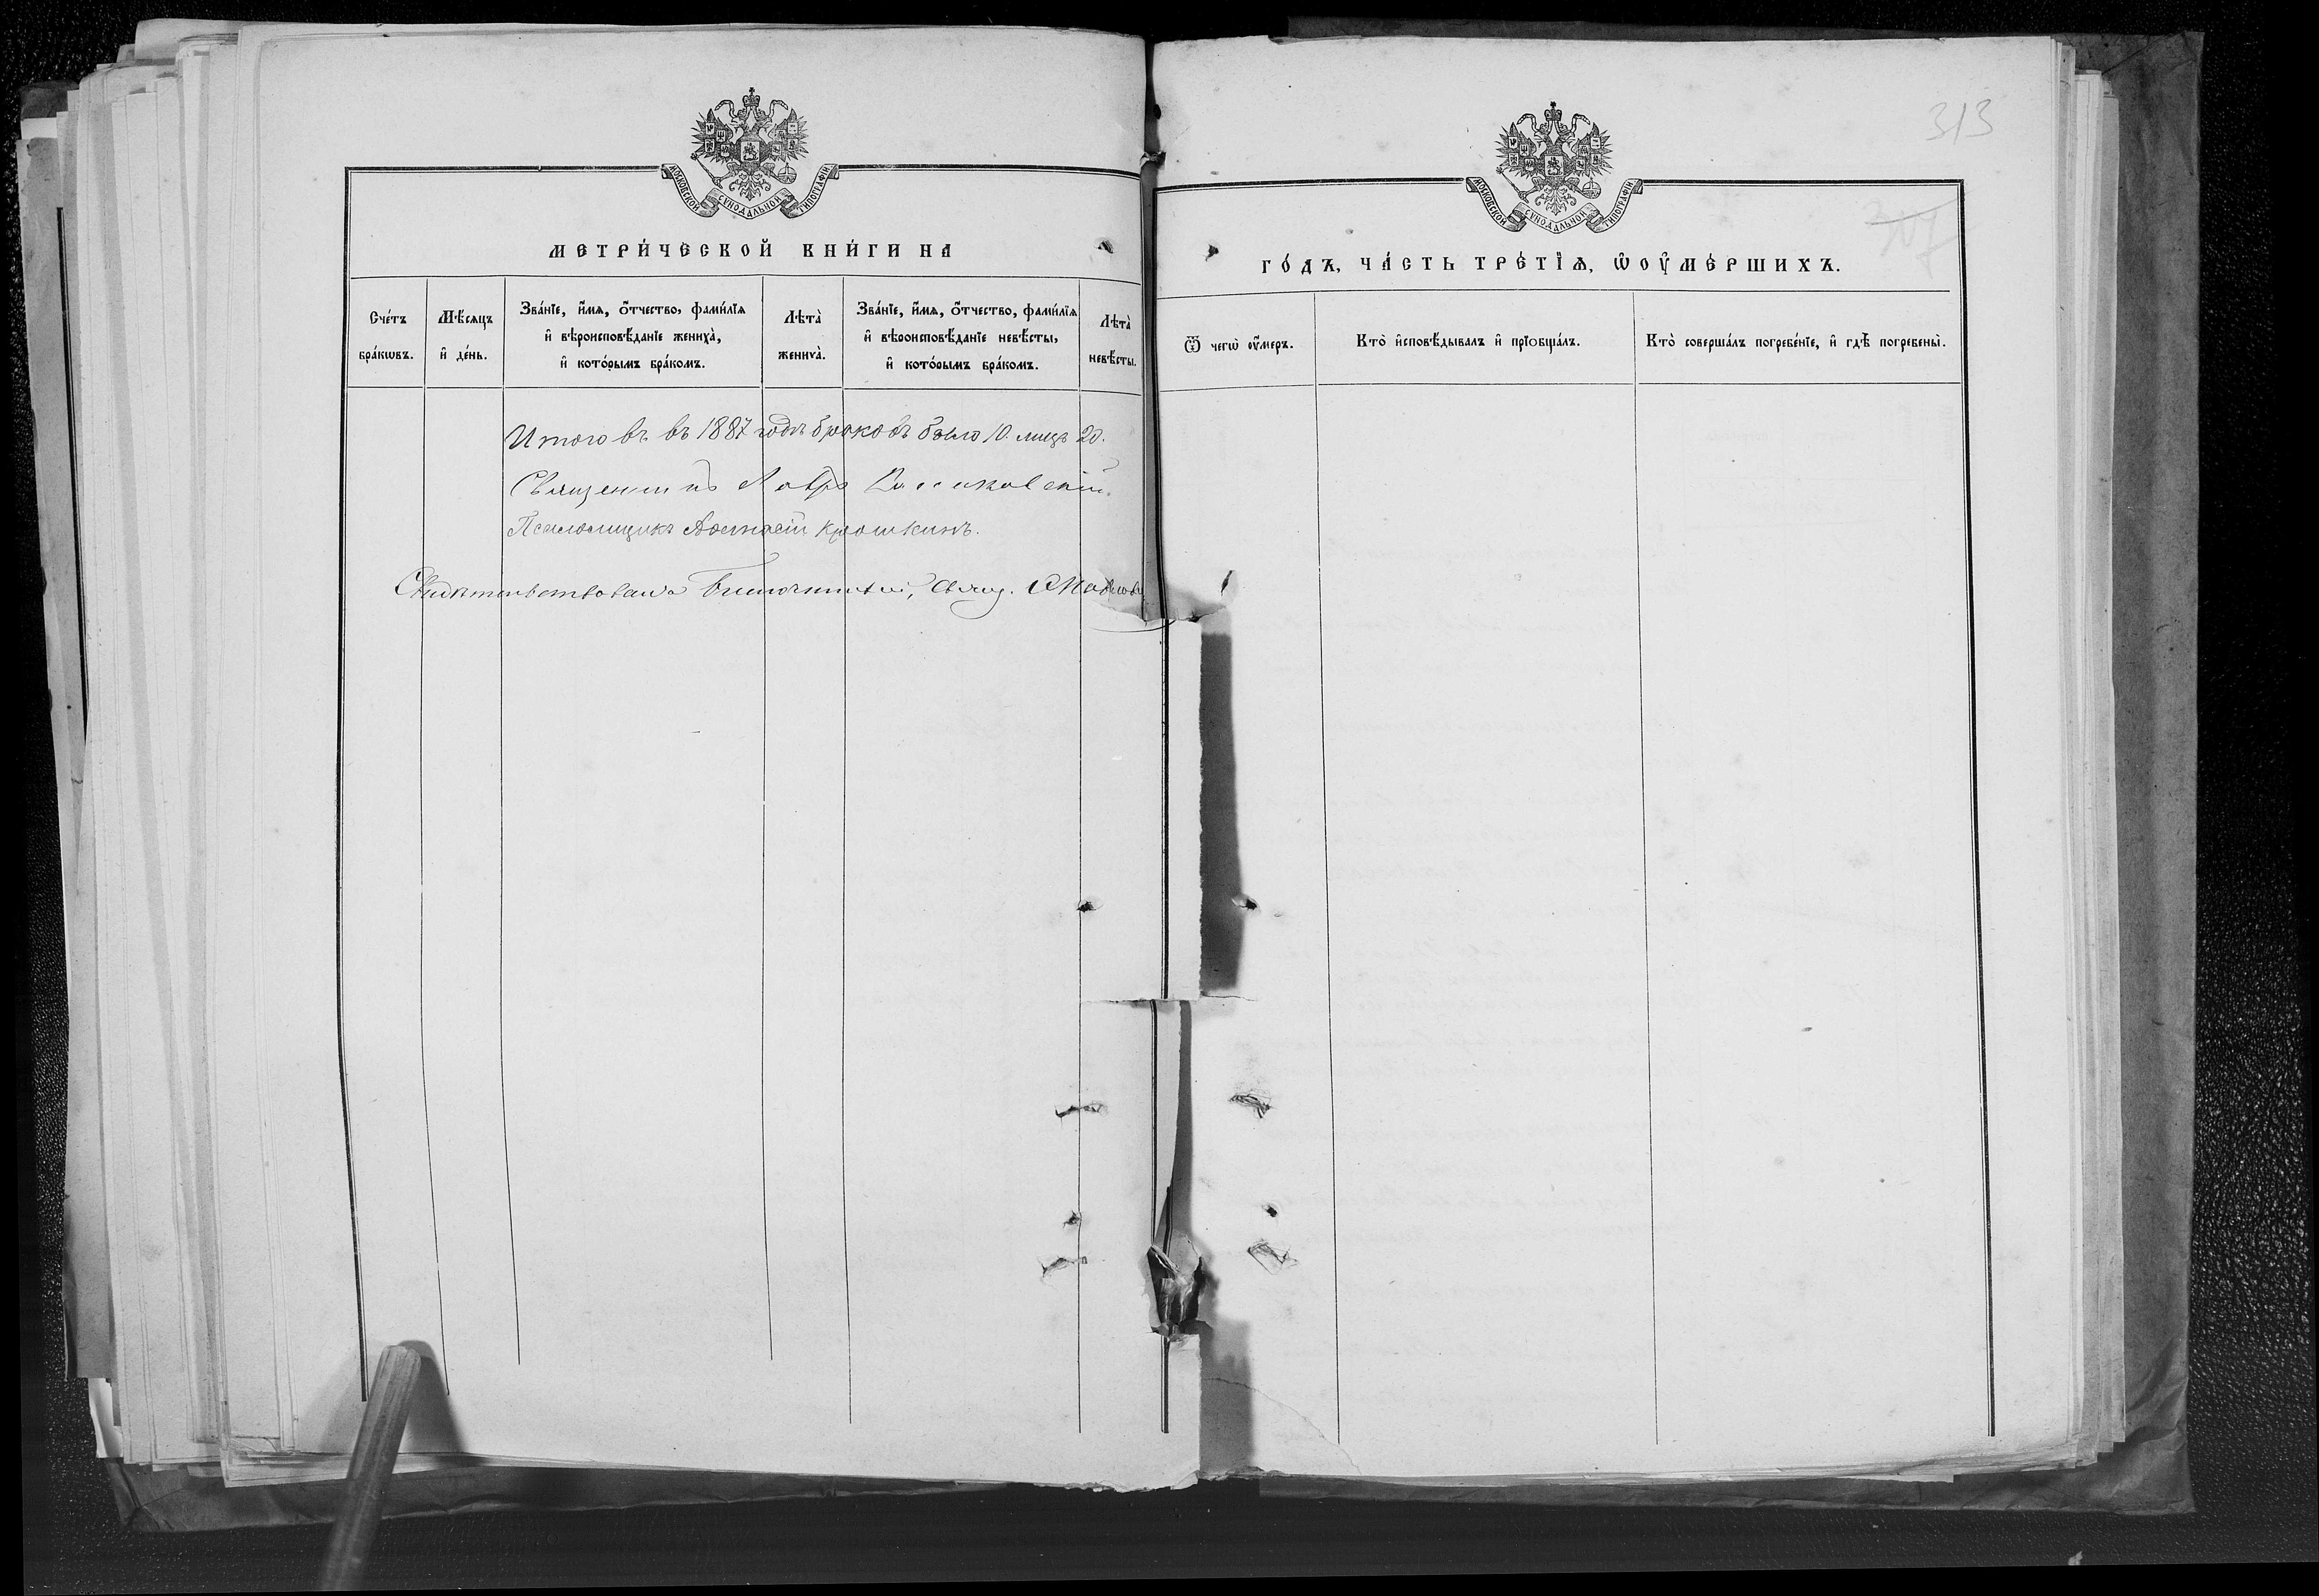 МОСКОВСКОЙ СУНОДАЛЬНОЙ ТИПОГРАФІИ
МЕТРИ́ЧЕСКОЙ КНИ́ГИ НА
Сче́тъ бра́кѡвъ.
Мѣ́сяцъ и҆ де́нь.
Зва́нїе, и҆́мѧ, ѻ҆́тчество, фами́лїѧ
и҆ вѣроисповѣ́данїе жениха̀,
и҆ кото́рымъ бра́комъ.
Лѣта̀ жениха̀.
Зва́нїе, и҆́мѧ, ѻ҆́тчество, фами́лїѧ
и҆ вѣроисповѣ́данїе невѣ́сты,
и҆ кото́рымъ бра́комъ.
Лѣта̀ невѣ́сты.
Итого въ въ 1887 годъ браковъ было 10. лицъ 20.
Священникъ
Псаломщикъ Крошкинъ.
Благочинный, Свящ.
313
МОСКОВСКОЙ СУНОДАЛЬНОЙ ТИПОГРАФІИ
ГО́ДЪ, ЧА́СТЬ ТРЕ́ТЇѦ, Ѡ҆ ОУ҆МЕ́РШИХЪ.
Ѿ чегѡ̀ оу҆́меръ.
Кто̀ и҆сповѣ́дывалъ и҆ прїобща́лъ.
Кто̀ соверша́лъ погребе́нїе, и҆ гдѣ̀ погребены̀.